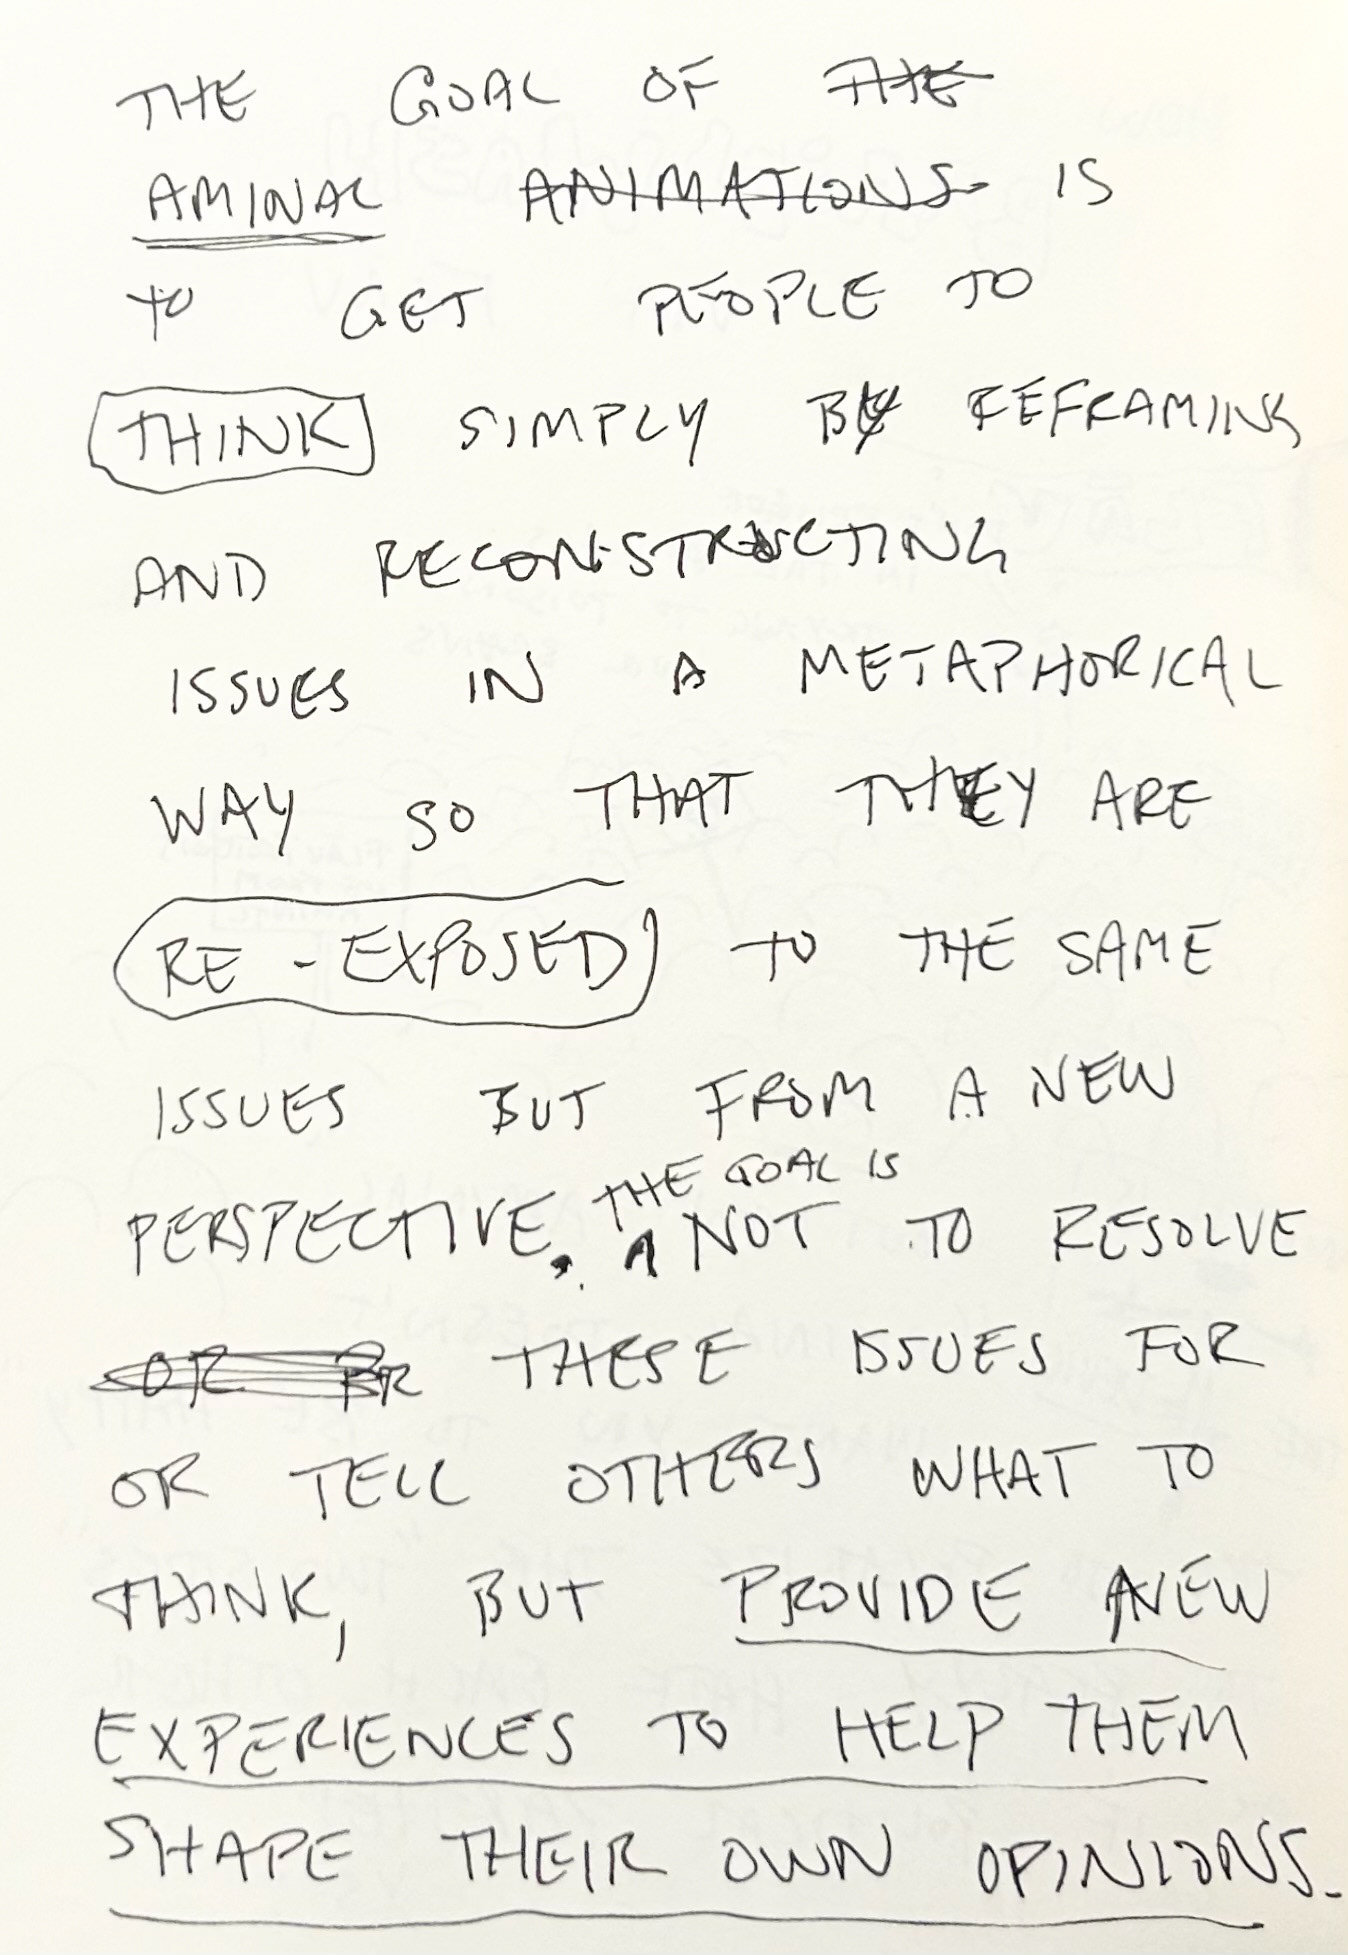 THE GOAL OF THE
AMINAL ANIMATIONS IS
TO GET PEOPLE TO
THINK SIMPLY BY REFRAMING
AND RECONSTRUCTING
ISSUES IN A METAPHORICAL
WAY SO THAT THEY ARE
RE-EXPOSED TO THE SAME
ISSUES BUT FROM A NEW
THE GOAL IS
PERSPECTIVE. NOT TO RESOLVE
OR THESE ISSUES FOR
OR TELL OTHERS WHAT TO
THINK, BUT PROVIDE NEW
EXPERIENCES TO HELP THEM
SHAPE THEIR OWN OPINIONS.